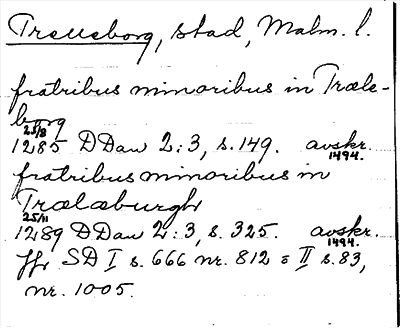 Trelleborg, stad, Malm. l.
fratribus minoribus in Træle-
borg
25/8
1285 DDan 2:3, s. 149. avskr.
1494.
fratribus minoribus in
Trælæburgh
25/11
1289 DDan 2:3, s. 325. avskr.
1494.
Jfr SD I s. 666 nr. 812 = II s. 83,
nr. 1005.